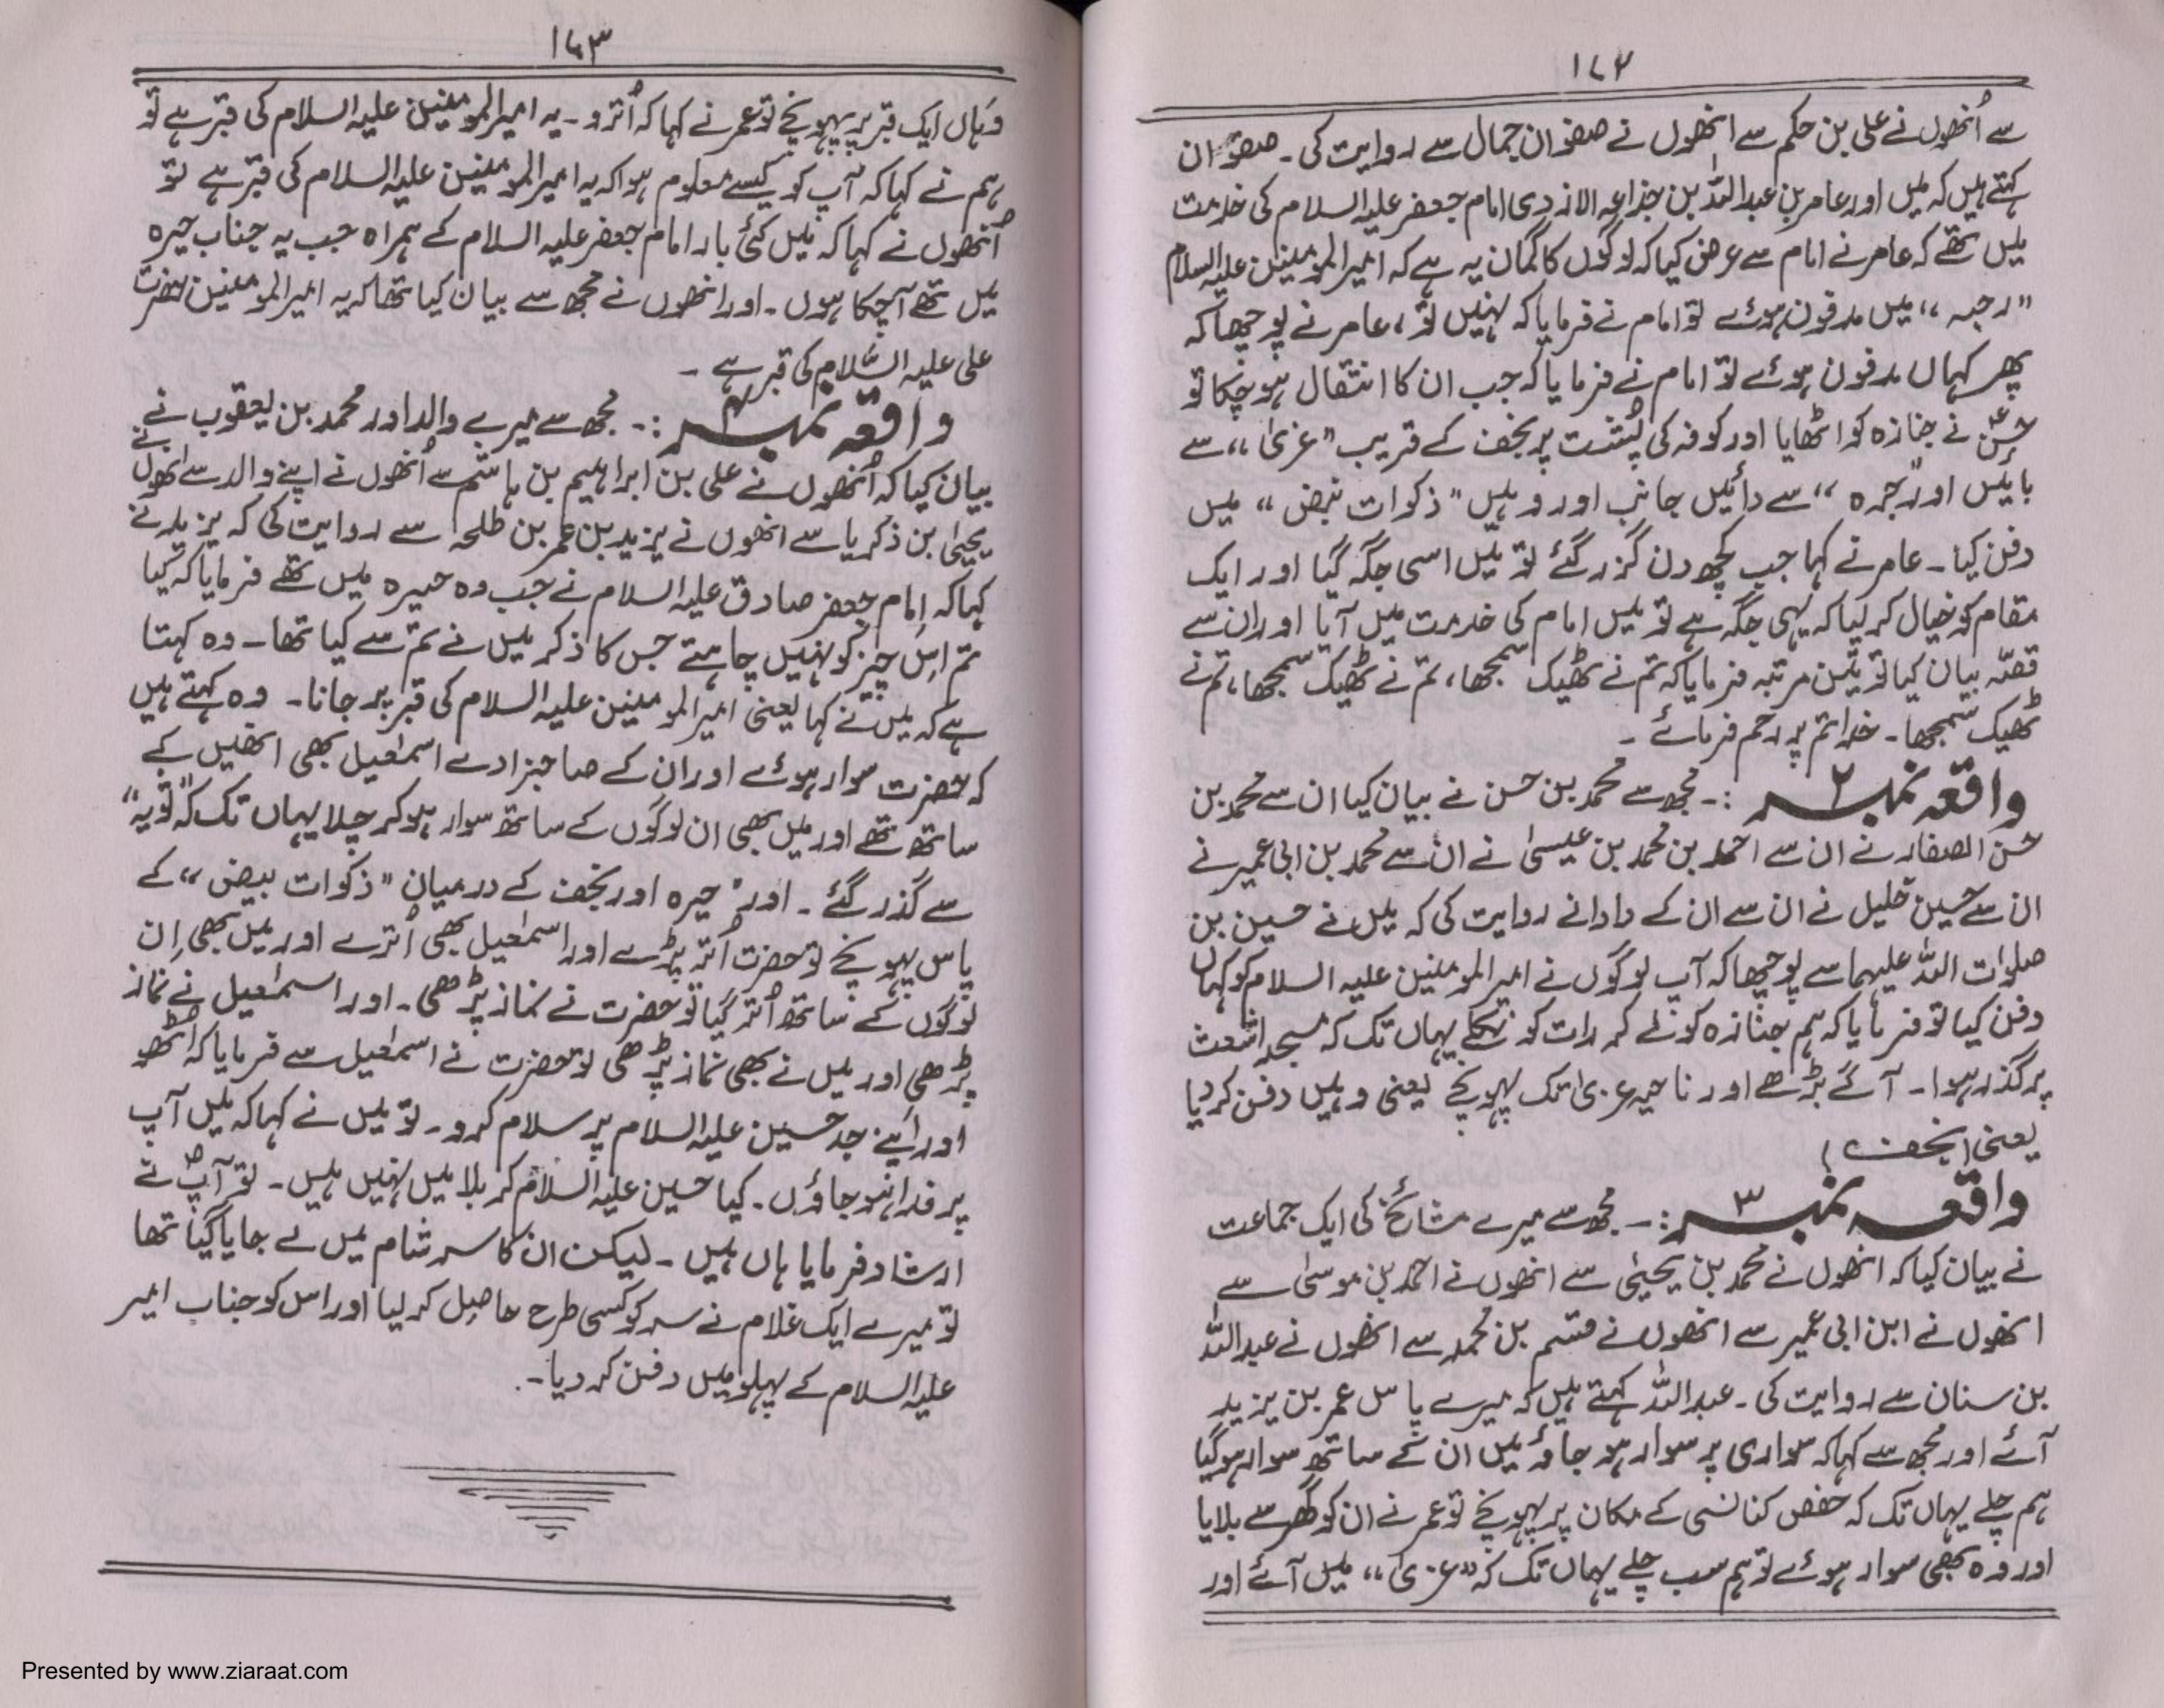 ۱۷۲
سے اُنھوں نے علی بن حکم سے انھوں نے صفوان جمال سے روایت کی۔ صفوان
کہتے ہیں کہ میں اور عامر بن عبداللہ بن جذاعہ الازدی امام جعفر علیہ السلام کی خدمت
میں تھے کہ عامر نے امام سے عرض کیا کہ لوگوں کا گمان یہ ہے کہ امیرالمومنین علیہ السلام
"رحبہ" میں مدفون ہوئے تو امام نے فرمایا کہ نہیں تو، عامر نے پوچھا کہ
پھر کہاں مدفون ہوئے تو امام نے فرمایا کہ جب ان کا انتقال ہو چکا تو
حسنؑ نے جنازہ کو اٹھایا اور کوفہ کی پُشت پر نجف کے قریب "غزیٰ" سے
بائیں اور "حیرہ" سے دائیں جانب اور وہیں "ذکوات بیض" میں
دفن کیا۔ عامر نے کہا جب کچھ دن گزر گئے تو میں اسی جگہ گیا اور ایک
مقام کو خیال کر لیا کہ یہی جگہ ہے تو میں امام کی خدمت میں آیا اور ان سے
قصّہ بیان کیا تو تین مرتبہ فرمایا کہ تم نے ٹھیک سمجھا، تم نے ٹھیک سمجھا، تم نے
ٹھیک سمجھا۔ خدا تم پر رحم فرمائے۔
واقعہ نمبر ۲ :۔ مجھ سے محمد بن حسن نے بیان کیا ان سے محمد بن
حسن الصفار نے ان سے احمد بن محمد بن عیسیٰ نے ان سے محمد بن ابی عمیر نے
ان سے حسین خلیل نے ان سے ان کے دادا نے روایت کی کہ میں نے حسین بن
صلوات اللہ علیہما سے پوچھا کہ آپ لوگوں نے امیرالمومنین علیہ السلام کو کہاں
دفن کیا تو فرمایا کہ ہم جنازہ کو لے کر رات کو نکلے یہاں تک کہ مسجد اشعث
پر گذر ہوا۔ آگے بڑھے اور ناحیہ غزیٰ تک پہونچے یعنی وہیں دفن کر دیا
یعنی (نجف)
واقعہ نمبر ۳ :۔ مجھ سے میرے مشائخ کی ایک جماعت
نے بیان کیا کہ انھوں نے محمد بن یحییٰ سے انھوں نے احمد بن موسیٰ سے
انھوں نے ابن ابی عمیر سے انھوں نے قسم بن محمد سے انھوں نے عبداللہ
بن سنان سے روایت کی۔ عبداللہ کہتے ہیں کہ میرے پاس عمر بن یزید
آئے اور مجھ سے کہا کہ سواری پر سوار ہو جاؤ میں ان کے ساتھ سوار ہو گیا
ہم چلے یہاں تک کہ حفص کناسی کے مکان پر پہونچے تو عمر نے ان کو گھر سے بلایا
اور وہ بھی سوار ہوئے تو ہم سب چلے یہاں تک کہ "غزیٰ" میں آئے اور
۱۷۳
وہاں ایک قبر پر پہونچے تو عمر نے کہا کہ اُترو۔ یہ امیرالمومنین علیہ السلام کی قبر ہے تو
ہم نے کہا کہ آپ کو کیسے معلوم ہوا کہ یہ امیرالمومنین علیہ السلام کی قبر ہے تو
اُنھوں نے کہا کہ میں کئی بار امام جعفر علیہ السلام کے ہمراہ جب یہ جناب حیرہ
میں تھے آچکا ہوں۔ اور انھوں نے مجھ سے بیان کیا تھا کہ یہ امیرالمومنین حضرت
علی علیہ السّلام کی قبر ہے۔
واقعہ نمبر ۴ :۔ مجھ سے میرے والد اور محمد بن یعقوب نے
بیان کیا کہ اُنھوں نے علی بن ابراہیم بن ہاشم سے اُنھوں نے اپنے والد سے انھوں نے
یحییٰ بن ذکریا سے انھوں نے یزید بن عمر بن طلحہ سے روایت کی کہ یزید نے
کہا کہ امام جعفر صادق علیہ السلام نے جب وہ حیرہ میں تھے فرمایا کہ کیا
تم اس چیز کو نہیں چاہتے جس کا ذکر میں نے تم سے کیا تھا۔ وہ کہتا
ہے کہ میں نے کہا یعنی امیرالمومنین علیہ السلام کی قبر پر جانا۔ وہ کہتے ہیں
کہ حضرت سوار ہوئے اور ان کے صاحبزادے اسمٰعیل بھی انھیں کے
ساتھ تھے اور میں بھی ان لوگوں کے ساتھ سوار ہو کر چلا یہاں تک کہ "ثویہ"
سے گذر گئے۔ اور حیرہ اور نجف کے درمیان "ذکوات بیض" کے
پاس پہونچے تو حضرت اُتر پڑے اور اسمٰعیل بھی اُترے اور میں بھی اِن
لوگوں کے ساتھ اُتر گیا تو حضرت نے نماز پڑھی۔ اور اسمٰعیل نے نماز
پڑھی اور میں نے بھی نماز پڑھی تو حضرت نے اسمٰعیل سے فرمایا کہ اٹھو
اور اپنے جد حسین علیہ السلام پر سلام کرو۔ تو میں نے کہا کہ میں آپ
پر فدا ہو جاؤں۔ کیا حسین علیہ السلام کربلا میں نہیں ہیں۔ تو آپؑ نے
ارشاد فرمایا ہاں ہیں۔ لیکن ان کا سر شام میں لے جایا گیا تھا
تو میرے ایک غلام نے سر کو کسی طرح حاصل کر لیا اور اس کو جناب امیر
علیہ السلام کے پہلو میں دفن کر دیا۔
Presented by www.ziaraat.com